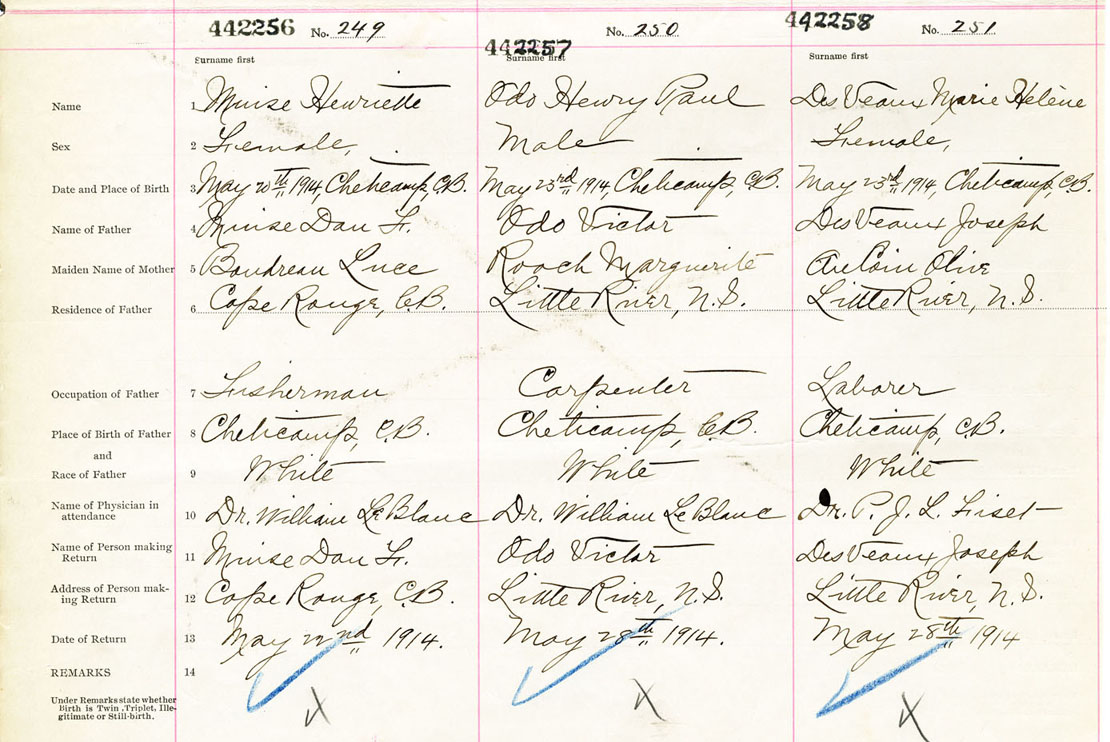 442256 No. 249
442257 No. 250
442258 No. 251
Surname first Surname first Surname first
Name 1 Muise Henriette Odo Henry Paul DesVeaux Marie Helène
Sex 2 Female, Male Female,
Date and Place of Birth 3 May 20th 1914, Cheticamp, C.B. May 23rd 1914 Cheticamp, C.B. May 23rd 1914, Cheticamp, C.B.
Name of Father 4 Muise Dan Fr. Odo Victor DesVeaux Joseph
Maiden Name of Mother 5 Boudreau Luce Roach Marguerite AuCoin Olive
Residence of Father 6 Cape Rouge, C.B. Little River, N.S. Little River, N.S.
Occupation of Father 7 Fisherman Carpenter Laborer
Place of Birth of Father 8 Cheticamp, C.B. Cheticamp, C.B. Cheticamp, C.B.
and
Race of Father 9 White White White
Name of Physician in
attendance 10 Dr. William LeBlanc Dr. William LeBlanc Dr. P. J. L. Fiset
Name of Person making
Return 11 Muise Dan Fr. Odo Victor DesVeaux, Joseph
Address of Person mak-
ing Return 12 Cape Rouge, C.B. Little River, N.S. Little River, N.S.
Date of Return 13 May 22nd 1914. May 28th 1914. May 28th 1914
REMARKS 14
Under Remarks state whether
Birth is Twin, Triplet, Ille-
gitimate or Still-birth.
X X X